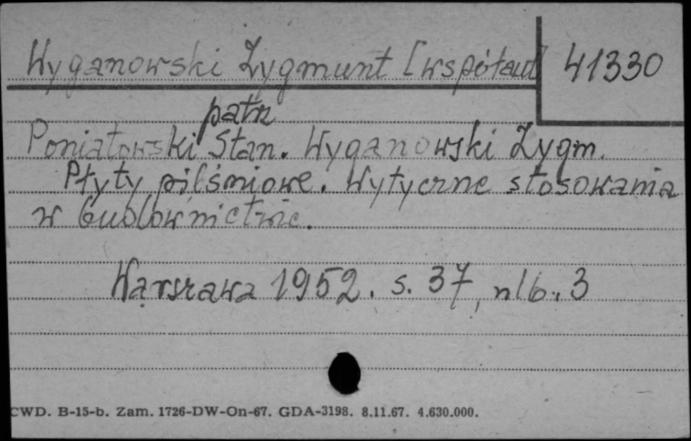 Wyganowski Zygmunt [współaut] 41330
patrz
Poniatowski Stan. Wyganowski Zygm.
Płyty pilśniowe. Wytyczne stosowania
w budownictwie.
Warszawa 1952. s. 37, nlb. 3
CWD. B-15-b. Zam. 1726-DW-On-67. GDA-3198. 8.11.67. 4.630.000.